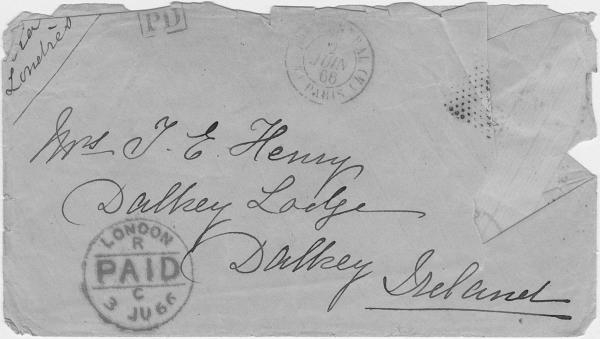 via
Londres
PD
JUIN
66
PARIS
Mrs T. E. Henry
Dalkey Lodge
Dalkey
Ireland
LONDON
R
PAID
C
3 JU 66